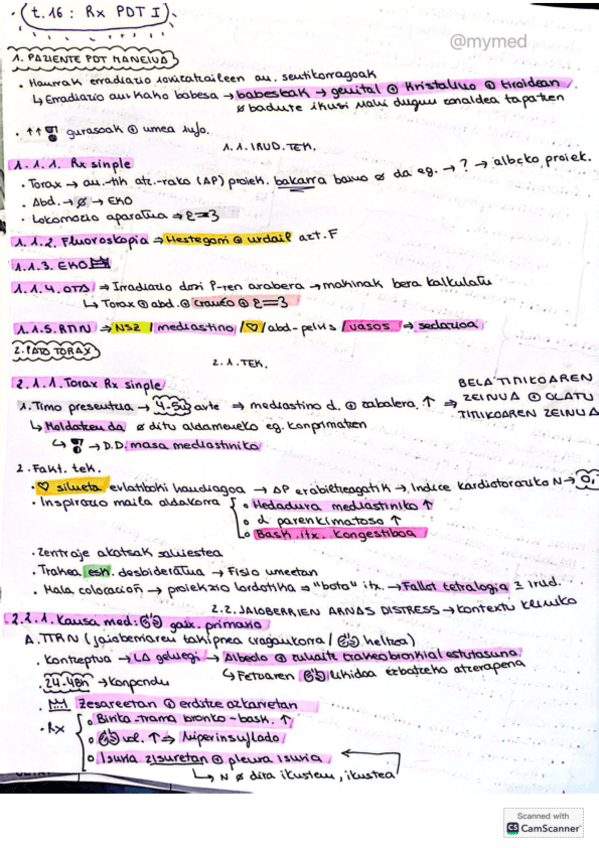 t.16: Rx PDT I
@mymed
1. PAZIENTE PDT MANEIUA
· Haurrak erradiazio ionizatzaileen au. sentikorragoak
↳ Erradiazio aurkako babesa → babesteak → genital ⊕ kristalino ⊕ tiroidean
ø badute ikusi nahi dugun zonaldea tapatzen
· ↑↑ gurasoak ⊕ umea info.
1.1. IRUD. TEK.
1.1.1. Rx sinple
· Torax → au.-tik atz.-rako (AP) proiek. bakarra baino ø da eg. → ? → alboko proiek.
· Abd. → ø → EKO
· Lokomozio aparatua ⇒ E=3
1.1.2. Fluoroskopia ⇒ Hestegorri ⊕ urdail azt. F
1.1.3. EKO
1.1.4. OTA ⇒ Irradiazio dosi P-ren arabera → makinak bera kalkulatu
↳ Torax ⊕ abd. ⊕ Craneo ⊕ E=3
1.1.5. RMN ⇒ NSZ / mediastino / ♡ / abd-pelvis / vasos ⇒ sedazioa
2. PATO TORAX
2.1. TEK.
2.1.1. Torax Rx sinple
BELA TIMIKOAREN
1. Timo presentzia → 4-5u arte ⇒ mediastino d. ⊕ zabalera ↑ ⇒ ZEINUA ⊕ OLATU
TIMIKOAREN ZEINUA
↳ Moldatzen da ø ditu aldameneko eg. konprimatzen
↳ ⇒ D.D. masa mediastiniko
2. Fakt. tek.
· ♡ silueta erlatiboki handiagoa → AP erabiltzeagatik → Indice kardiotoraziko N → 0,
· Inspirazio maila aldakorra
• Hedadura mediastiniko ↑
• d parenkimatoso ↑
• Bask. itx. kongestiboa
· Zentraje akatsak saihestea
· Trakea esk. desbideratua → Fisio umeetan
· Mala colocación → proiekzio lordotika ⇒ "bota" itx. → Fallot tetralogia irud.
2.2. JAIOBERRIEN ARNAS DISTRESS → kontextu kliniko
2.2.1. Kausa med: gaix. primario
A. TTRN (jaioberriaren takipnea iragankorra / heltzea)
· Kontzeptua → LA gehiegi → Albeolo ⊕ zuhaitz trakeobronkial estutasuna
↳ Fetuaren likidoa ezbatzeko atzerapena
· 24-48h → konpondu
· Zesareetan ⊕ erditze azkarretan
· Rx
• Binka-trama bronko-bask. ↑
• vol. ↑ ⇒ hiperinsuflado
• Isuria zisuretan ⊕ pleura isuria
↳ N ø dira ikusten, ikustea
Scanned with
CS CamScanner